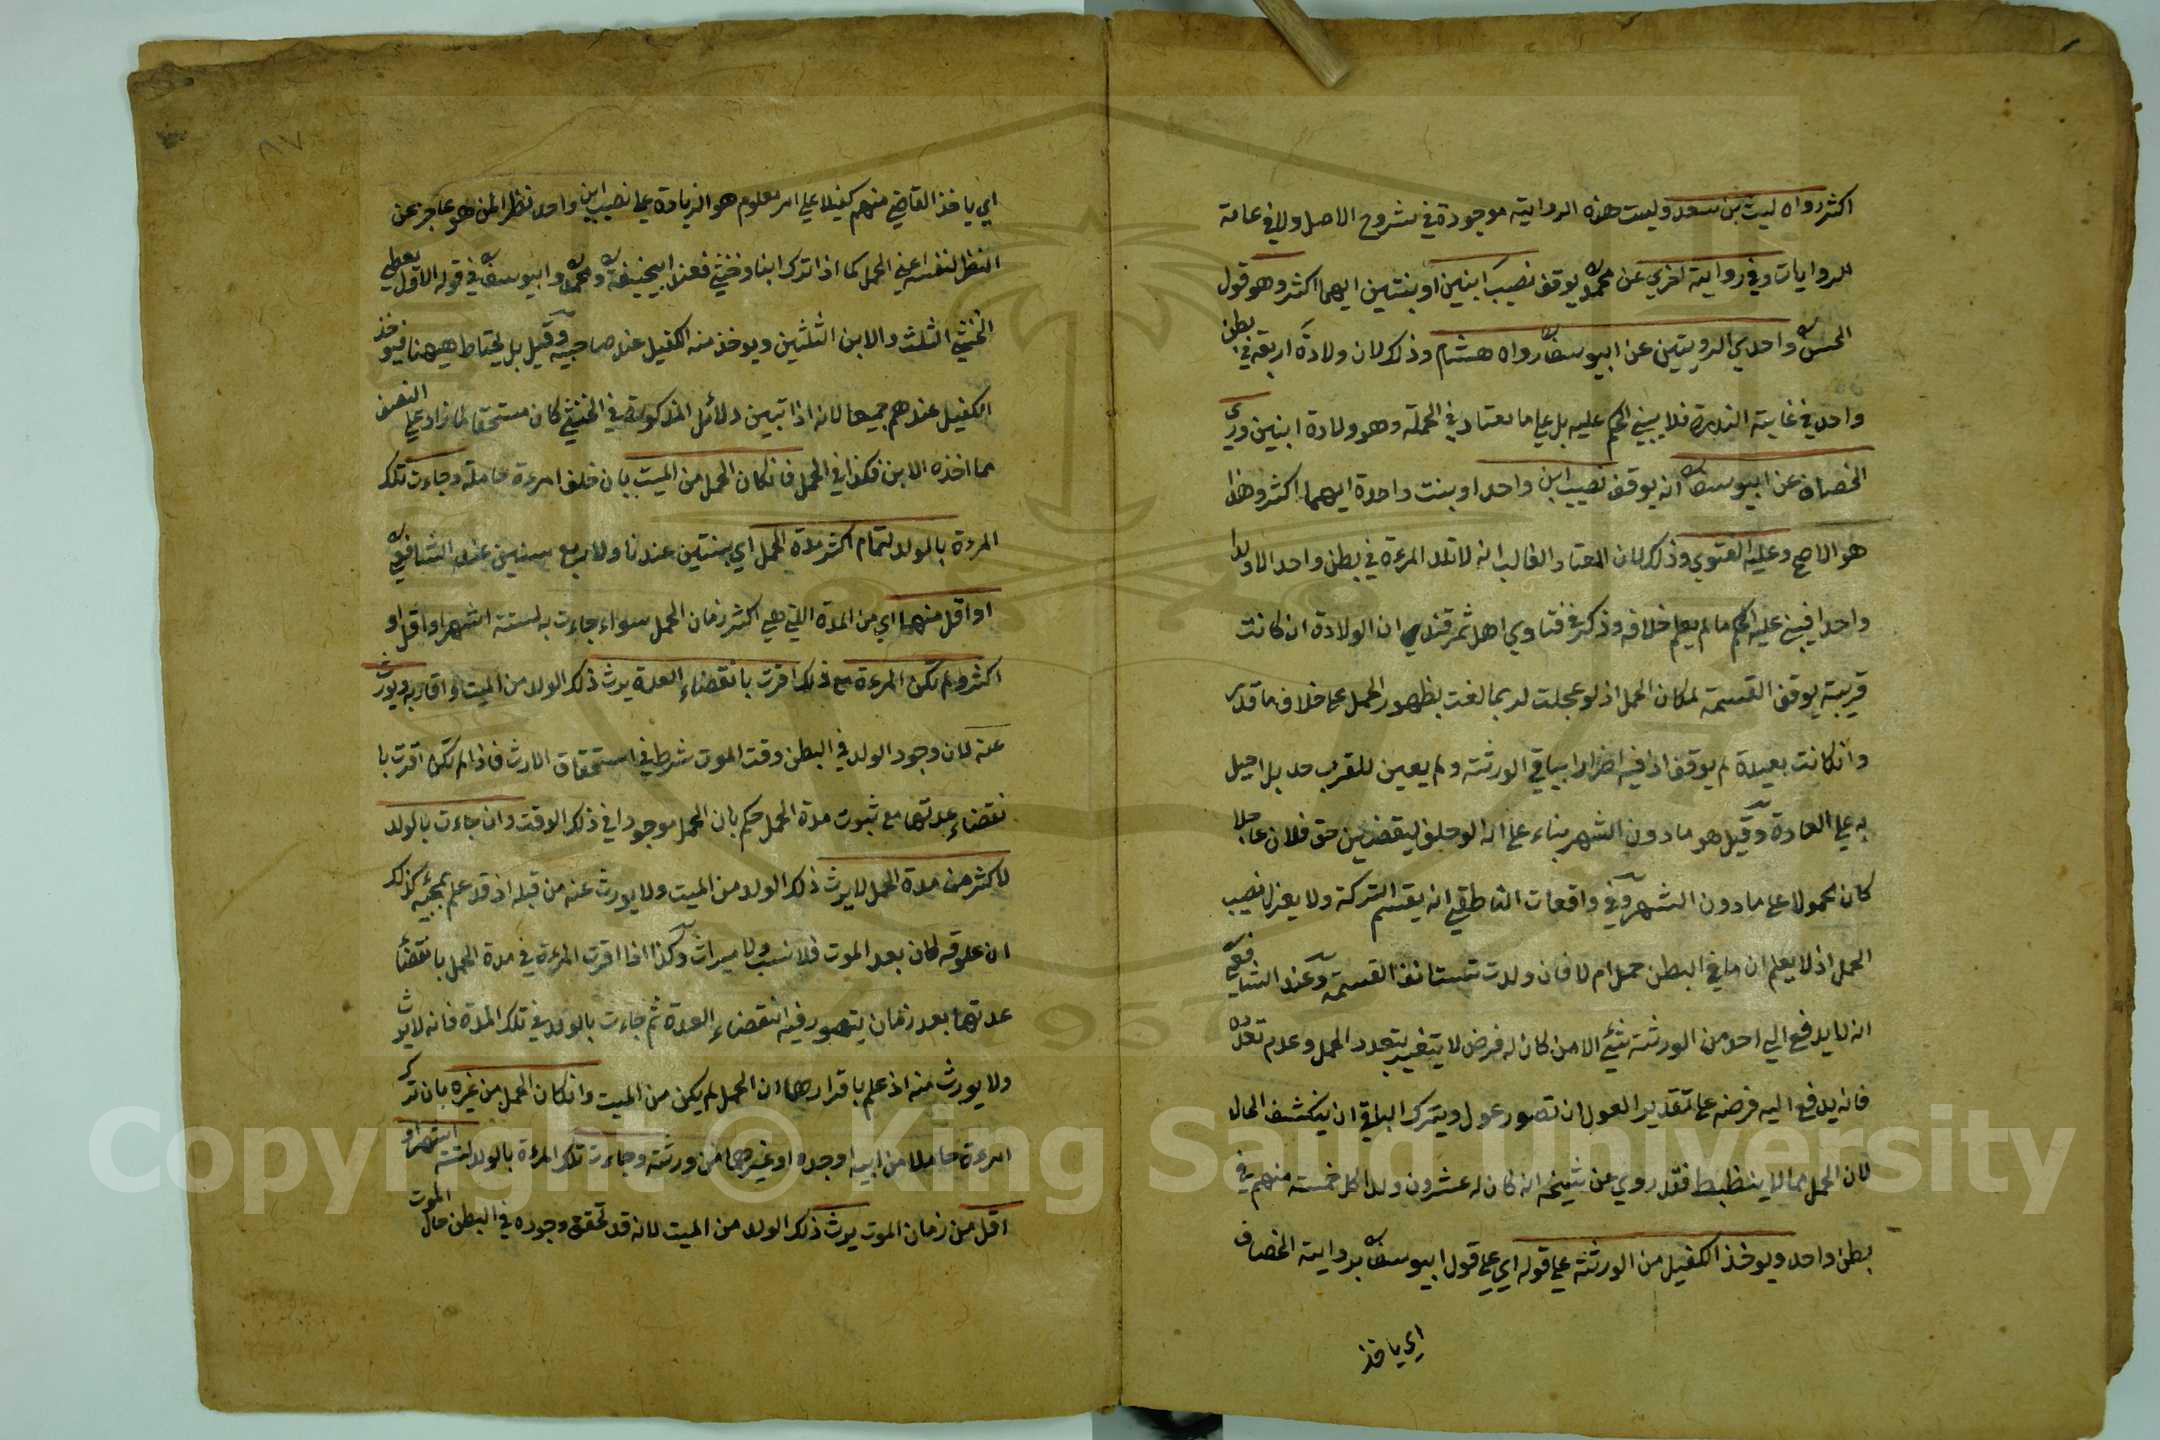 اكثر رواه ليث بن سعد وليست هذه الرواية موجودة في شروح الاصل ولا في عامة
الروايات وفي رواية اخري عن محمد يوقف نصيب ابنين او بنتين ايهما اكثر وهو قول
الحسن واحدي الرويتين عن ابيوسف رواه هشام وذلك لان ولادة اربعة في بطن
واحد في غاية الندرة فلا يبني الحكم عليه بل علي ما يعتاد في الجملة وهو ولادة ابنين وروي
الخصاف عن ابيوسف انه يوقف نصيب ابن واحد او بنت واحدة ايهما اكثر وهذا
هو الاصح وعليه الفتوي وذلك لان المعتاد الغالب انه لا تلد المرءة في بطن واحد الا ولدا
واحدا فيبني عليه الحكم ما لم يعلم خلافه وذكر في فتاوي اهل سمرقند ان الولادة ان كانت
قريبة يوقف القسمة لمكان الحمل اذ لو عجلت لربما لغت بظهور الحمل علي خلاف ما قدر
وانكانت بعيدة لم يوقف اذ فيه اضرار بباقي الورثة ولم يعين للقرب حد بل احيل
به علي العادة وقيل هو ما دون الشهر بناء علي انه لو حلف ليقضين حق فلان عاجلا
كان محمولا علي ما دون الشهر وفي واقعات الناطقي انه يقسم التركة ولا يعزل نصيب
الحمل اذ لا يعلم ان ما في البطن حمل ام لا فان ولدت تستانف القسمة وعند الشافعي
انه لا يدفع الي احد من الورثة شئ الا من كان له فرض لا يتغير بتعدد الحمل وعدم تعدده
فانه يدفع اليه فرضه علي تقدير العول ان تصور عول ويترك الباقي ان ينكشف الحال
لان الحمل مما لا ينظبط فقد روي عن شيخه انه كان له عشرون ولدا كل خمسة منهم في
بطن واحد ويوخذ الكفيل من الورثة علي قوله اي علي قول ابيوسف برواية الخصاف
اي ياخذ
اي ياخذ القاضي منهم كفيلا علي امر معلوم هو الزيادة علي نصيب ابن واحد نظرا لمن هو عاجز عن
النظر لنفسه اعني الحمل كما اذا ترك ابنا وخنثي فعند ابيحنيفة ومحمد وابيوسف في قوله الاول يعطي
الخنثي الثلث والابن الثلثين ويوخذ منه الكفيل عند صاحبيه وقيل بل يحتاط ههنا فيوخذ
الكفيل عندهم جميعا لانه اذا تبين دلائل المذكورة في الخنثي كان مستحقا لما زاد علي النصف
مما اخذه الابن فكذا في الحمل فانكان الحمل من الميت بان خلف امرءة حاملة وجاءت تلك
المرءة بالولد لتمام اكثر مدة الحمل اي بسنتين عندنا ولاربع سنين عند الشافعي
او اقل منها اي من المدة التي هي اكثر زمان الحمل سواء جاءت به لستة اشهر او اقل او
اكثر ولم تكن المرءة مع ذلك اقرت بانقضاء العدة يرث ذلك الولد من الميت واقاربه ويورث
عنه لان وجود الولد في البطن وقت الموت شرط في استحقاق الارث فاذا لم تكن اقرت با
نقضاء عدتها مع ثبوت مدة الحمل حكم بان الحمل موجودا في ذلك الوقت وان جاءت بالولد
لاكثر من مدة الحمل لا يرث ذلك الولد من الميت ولا يورث عنه من قبله اذ قد علم بمجيئه كذلك
ان علوقه كان بعد الموت فلا نسب ولا ميراث وكذا اذا اقرت المرءة في مدة الحمل بانقضاء
عدتها بعد زمان يتصور فيه انقضاء العدة ثم جاءت بالولد في تلك المدة فانه لا يرث
ولا يورث منه اذ علم باقرارها ان الحمل لم يكن من الميت وانكان الحمل من غيره بان ترك
امرءة حاملا من ابيه او جده او غيرهما من ورثته وجاءت تلك المرءة بالولد لستة اشهر او
اقل من زمان الموت يرث ذلك الولد من الميت لانه قد تحقق وجوده في البطن حال الموت
٨٧
Copyright © King Saud University
1957